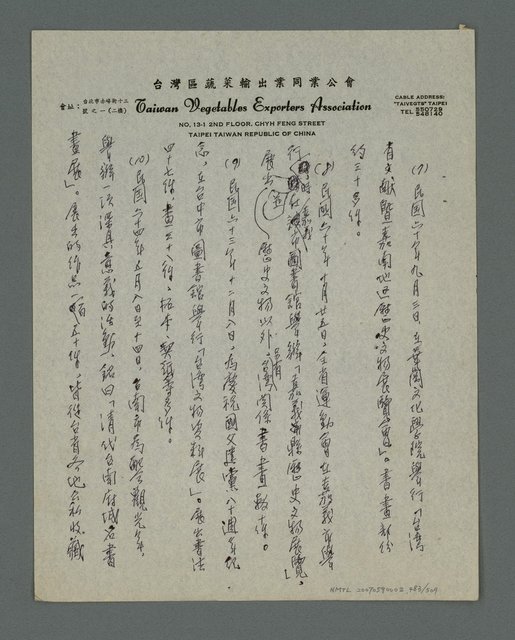 台灣區蔬菜輸出業同業公會
會址：台北市赤峰街十三號之一（二樓）
Taiwan Vegetables Exporters Association
CABLE ADDRESS:
"TAIVEGTS" TAIPEI
TEL 550729
548140
NO. 13-1 2ND FLOOR. CHYH FENG STREET
TAIPEI TAIWAN REPUBLIC OF CHINA
(7)民國六十年九月三日在華岡文化學院舉行「台灣
省文獻暨嘉南地區歷史文物展覽會」。書畫部份
約三十多件。
(8)民國六十年十月廿五日，全省運動會在嘉義市舉
行時，嘉義市圖書舘舉辦「嘉義縣歷史文物展覽」
展出歷史文物以外，另有台灣關係書畫數十件。
(9)民國六十三年十二月八日，為慶祝國父建黨八十週年紀
念，在台中市圖書舘舉行「台灣文物資料展」。展出書法
四十七件，畫三十八件，拓本、契紙等多件。
(10)民國六十四年五月八日至十四日，台南市為配合觀光年，
舉辦一項深具意義的活動，銘曰「清代台南府城名書
畫展」。展出的作品一百五十件，皆從台省各地公私收藏
NMTL 20070590002 483/509